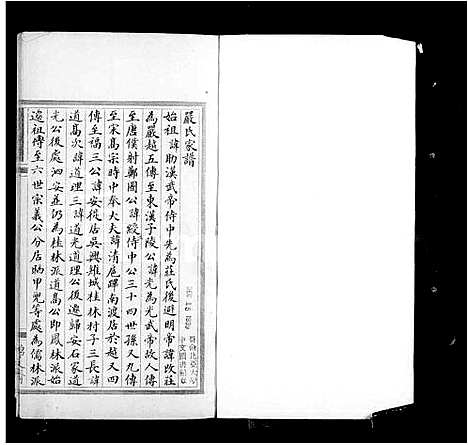 嚴氏家譜
始祖諱助漢武帝侍中先為莊氏後避明帝諱改莊
為嚴越五傳至東漢子陵公諱光為光武帝故人傳
至唐僕射鄭國公諱綬侍中公三十四世孫又九傳
至宋高宗時中奉大夫諱清扈蹕南渡居於越又四
傳至福三公諱安從居吳興雉城桂林村子三長諱
道高次諱道理三諱道光道理公後遷歸安石家道
光公後處泗安並仍為桂林派道高公即鳳林派始
遷祖傳至六世宗義公分居晒甲兜等處為儒林派